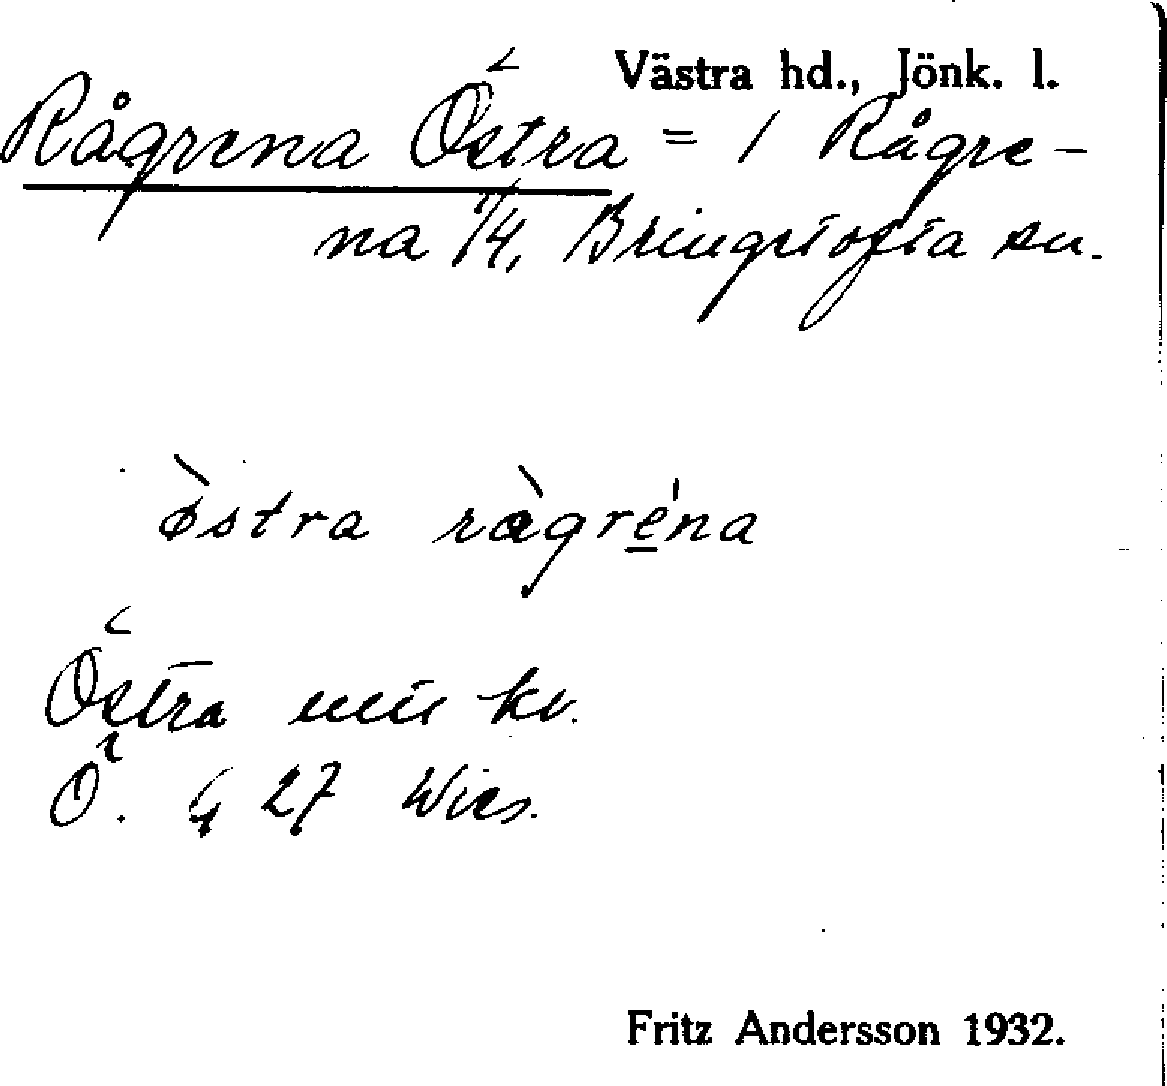 Västra hd., Jönk. l.
Rågrena Östra = 1 Rågre-
na 1/4, Bringetofta sn.
östra rågréna
Östra
Ö. G 27
Fritz Andersson 1932.